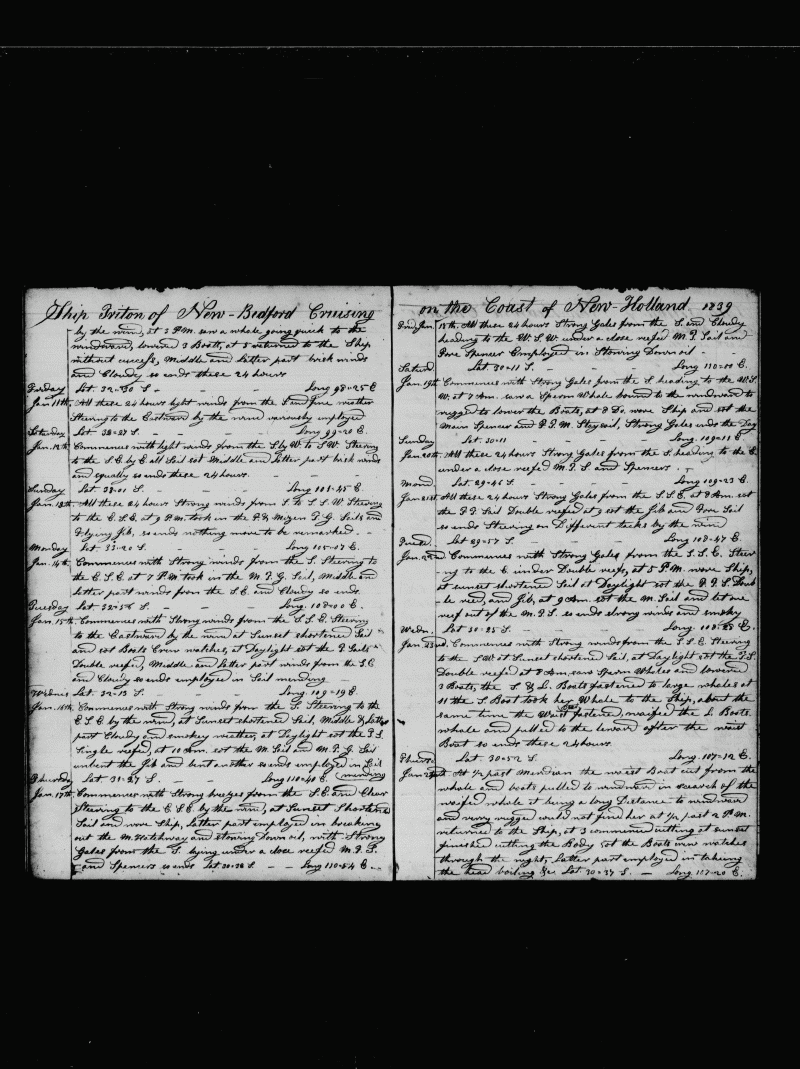 Ship Triton of New-Bedford Cruising
by the wind, at 2 P.M. saw a whale going quick to the
windward, lowered 3 Boats, at 5 returned to the Ship
without success, Middle and latter part brisk winds
and Cloudy so ends these 24 hours
Friday Lat. 32-30 S. - - - Long 98-25 E
Jan. 11th. All these 24 hours light winds from the S and fine weather
Steering to the Eastward by the wind variously employed
Saturday Lat. 32-27 S. - - - Long 99-20 E.
Jan. 12th. Commences with light winds from the S by W. to S.W. Steering
to the E.S.E. by E all Sail set Middle and latter part brisk winds
and squally so ends these 24 hours.
Sunday Lat. 33-01 S. - - - Long 101-45 E
Jan. 13th. All these 24 hours Strong winds from S. to S.S.W. Steering
to the E.S.E. at 9 P.M. took in the F. & Mizen T. G. Sails and
Flying Jib, so ends nothing more to be remarked.
Monday Lat. 33-20 S. - - - Long 105-07 E.
Jan. 14th. Commences with Strong winds from the S. Steering to
the E.S.E. at 7 P.M. took in the M. T. G. Sail, Middle and
latter part winds from the S.E. and Cloudy so ends.
Tuesday Lat. 32-56 S. - - - Long. 108-00 E.
Jan. 15th. Commences with Strong winds from the S.S.E. Steering
to the Eastward by the wind at Sunset shortened Sail
and set Boats Crew watches, at Daylight set the T. Sails
Double reefed, Middle and latter part winds from the S.E
and Cloudy so ends employed in Sail mending
Wednes Lat. 32-13 S. - - - Long. 109-19 E.
Jan. 16th. Commences with Strong winds from the S. Steering to the
E.S.E. by the wind, at Sunset shortened Sail, Middle & latter
part Cloudy and smokey weather, at Daylight set the T.S.
Single reefed, at 10 A.m. set the M. Sail and M. T. G. Sail
unbent the Jib and bent another so ends employed in Sail
mending
Thursday Lat. 31-27 S. - - - Long 110-41 E.
Jan. 17th. Commences with Strong breezes from the S.E. and Clear
Steering to the E.S.E. by the wind, at Sunset Shortened
Sail and wore Ship, Latter part employed in breaking
out the M. Hatchway and stowing Down oil, with Strong
Gales from the S. lying under a close reefed M. T. S.
and Spencers so ends Lat 30-38 S. - - Long 110-54 E.
on the Coast of New-Holland 1839
Frid. Jan. 18th. All these 24 hours Strong Gales from the S. and Cloudy
heading to the W.S.W. under a close reefed M. T. Sail and
Fore Spencer Employed in Stowing Down oil - -
Saturd Lat 30-11 S. - - - Long 110-01 E.
Jan. 19th. Commences with Strong Gales from the S. heading to the W.S.
W. at 7 A.m. saw a Sperm Whale bound to the windward to
rugged to lower the Boats, at 8 Do. wore Ship and set the
Main Spencer and F. T. M. Staysail, Strong Gales ends the Day
Sunday Lat. 30-11 - - - Long. 109-11 E
Jan. 20th. All these 24 hours Strong Gales from the S. heading to the E.
under a close reefed M. T. S and Spencers.
Mond Lat 29-46 S. - - - Long 109-23 E.
Jan. 21st. All these 24 hours Strong Gales from the S.S.E. at 8 A.m. set
the F. T. Sail Double reefed at 9 set the Jib and Fore Sail
so ends Steering on Different tacks by the wind
Tuesd. Lat 29-57 S. - - - Long 108-47 E.
Jan. 22nd Commences with Strong Gales from the S.S.E. Steer
-ing to the E. under Double reefs, at 5 P.M. wore Ship,
at sunset shortened Sail at Daylight set the F. T. S Doub
le reed, and Jib, at 9 A.m. set the M. Sail and let one
reef out of the M.T.S. so ends strong winds and smokey
Wedn. Lat 30-25 S. - - - Long 108-28 E.
Jan. 23rd. Commences with Strong winds from the S.S.E. Steering
to the S.W. at Sunset shortened Sail, at Daylight set the T.S.
Double reefed at 8 A.m. saw Sperm Whales and lowered
3 Boats, the S. & L. Boats fastened to large whales at
11 the S Boat took her Whale to the Ship, about the
same time the Waist Boat fastened, waifed the L. Boats
whale and pulled to the leward after the waist
Boat so ends these 24 hours
Thursd Lat. 30-52 S. - - - Long 107-12 E.
Jan. 24th At 1/2 past Meridian the waist Boat cut from the
whale and boats pulled to windward in search of the
waifed whale it being a long Distance to windward
and verry rugged could not find her at 1/2 past 2 P.M.
returned to the Ship, at 3 commenced cutting at sunset
finished cutting the Body set the Boats crew watches
through the night, Latter part employed in takeing
the head boiling &c Lat 30-37 S. - Long 107-20 E.